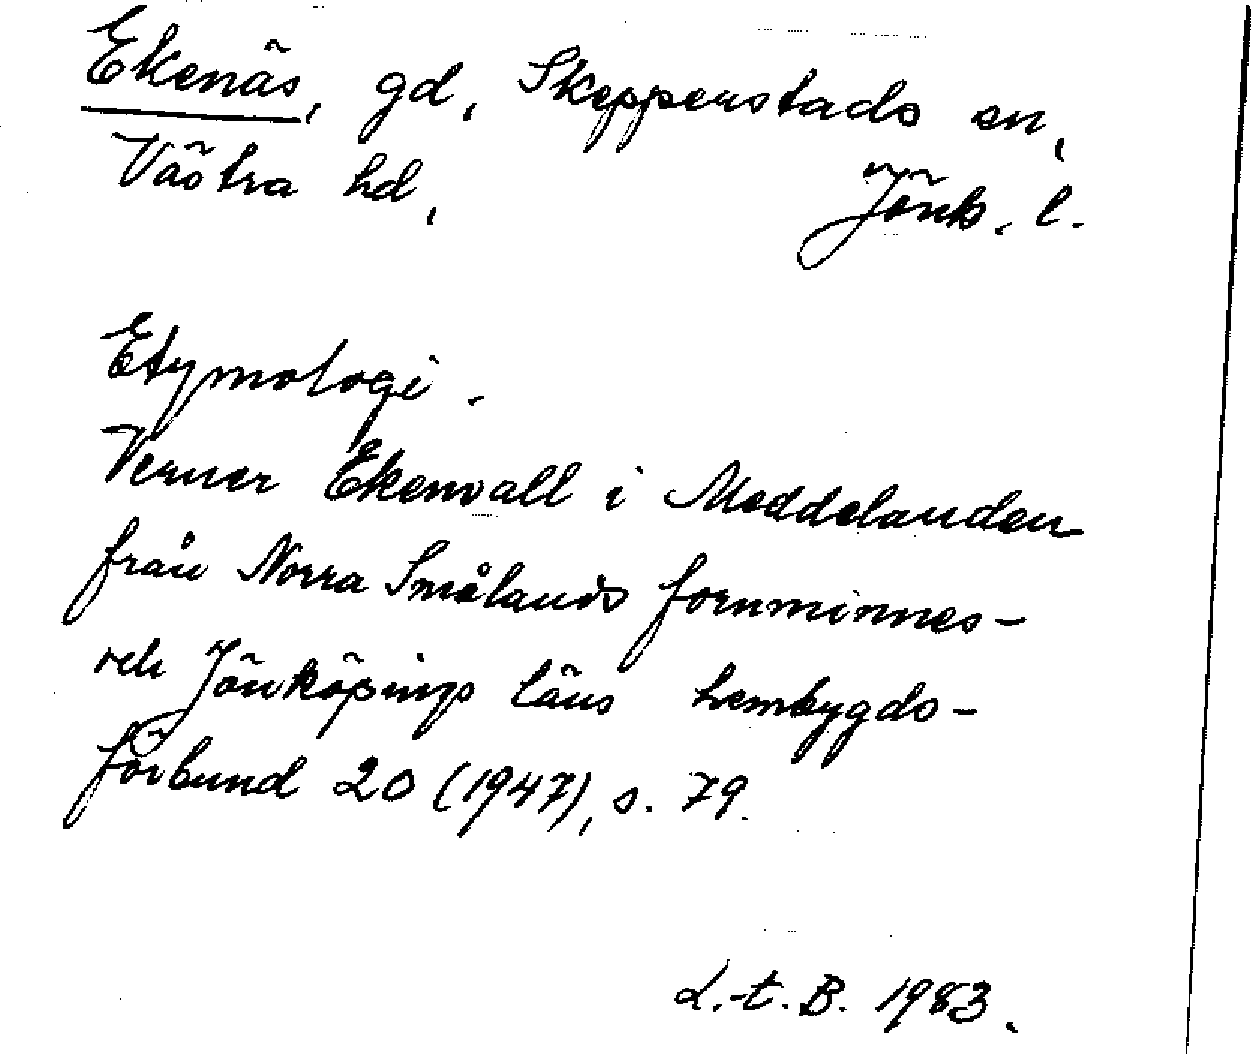 Ekenäs, gd, Skepperstads sn,
Västra hd, Jönk. l.
Etymologi.
Verner Ekenvall i Meddelanden
från Norra Smålands fornminnes-
och Jönköpings läns hembygds-
förbund 20 (1947), s. 79.
L.-t. B. 1983.